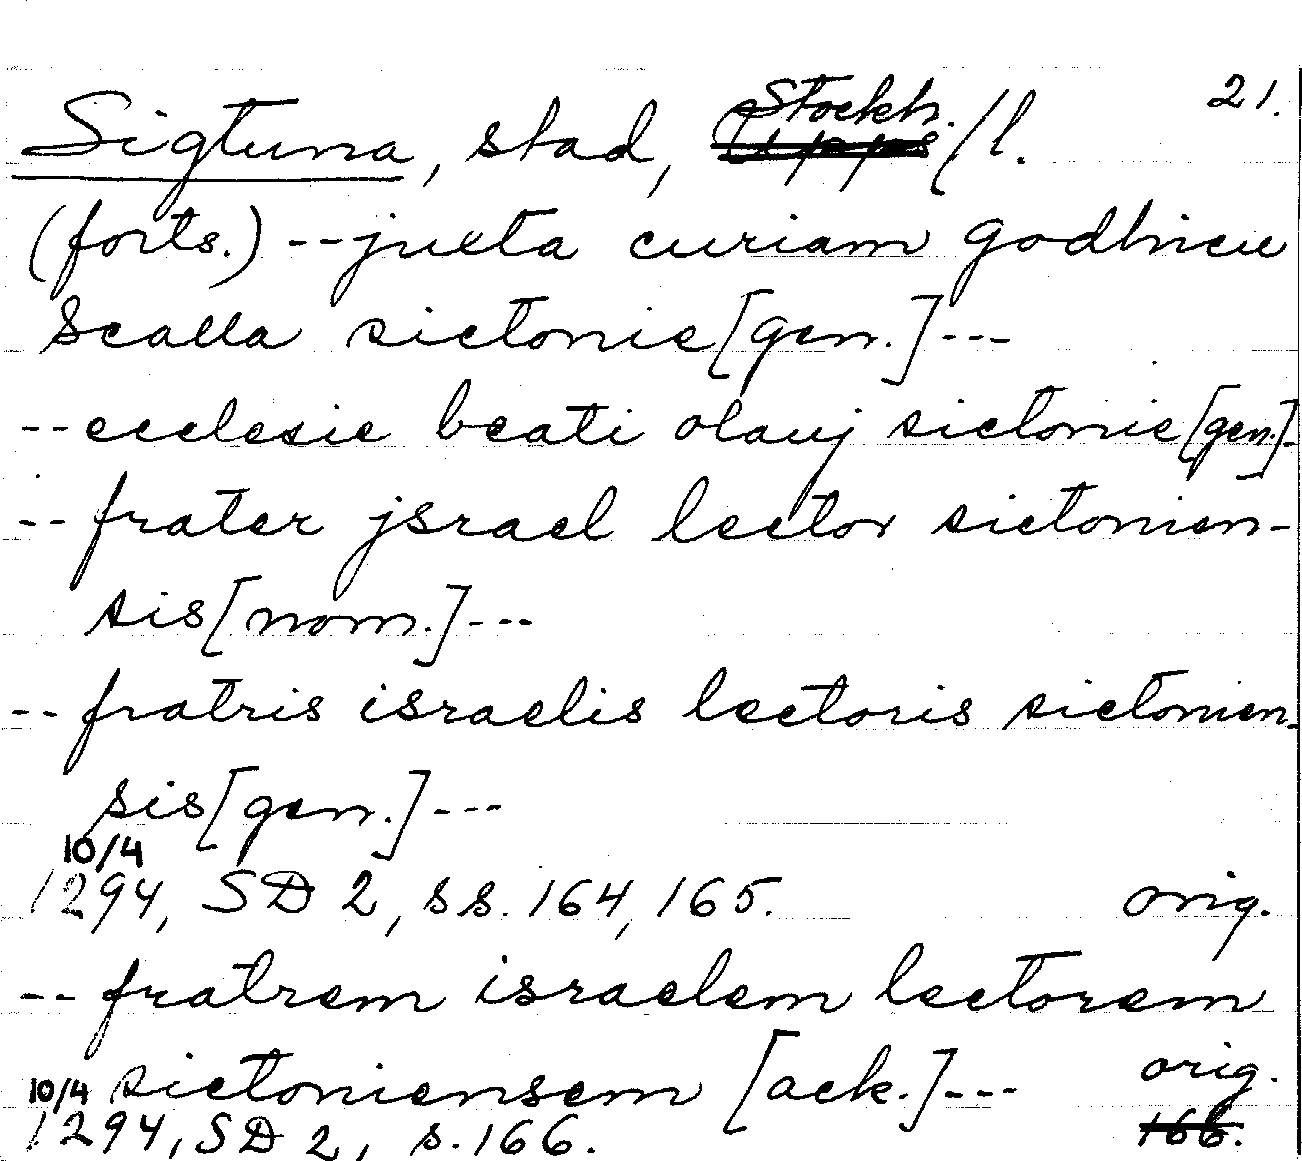 21.
Sigtuna, stad, Stockh./l.
(forts.) -- juxta curiam godhneu
Scalla sictonie [gen.] ---
-- ecclesie beati olauj sictonie [gen.]-
-- frater jsrael lector sictonien-
sis [nom.] ---
-- fratris israelis lectoris sictonien-
sis [gen.] ---
10/4
1294, SD 2, ss. 164, 165. orig.
-- fratrem israelem lectorem
sictoniensem [ack.] --- orig.
10/4
1294, SD 2, s. 166. 166.